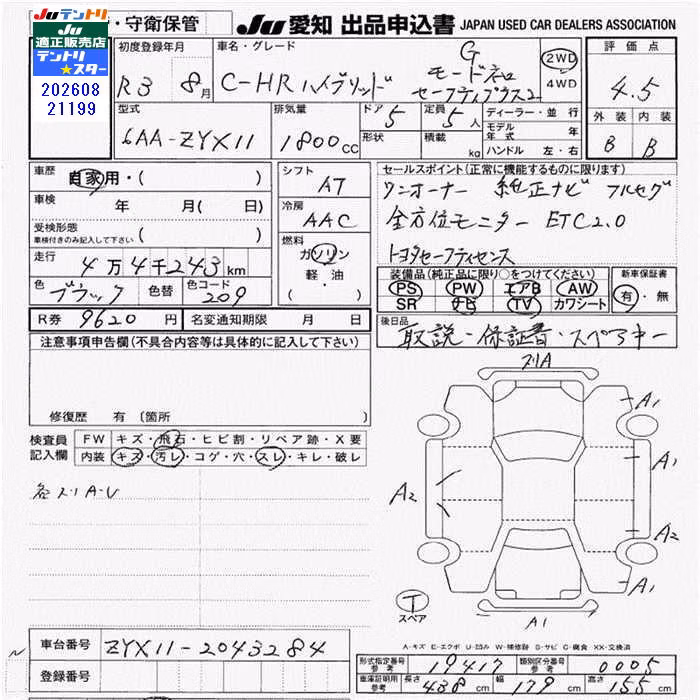 JUテントリ
JU
適正販売店
テントリ
★スター
202608
21199
・守衛保管
JU 愛知 出品申込書
JAPAN USED CAR DEALERS ASSOCIATION
初度登録年月
R3 8月
車名・グレード
C-HR ハイブリッド
G
モードネロ
セーフティプラス2
2WD
4WD
評価点
4.5
外装 内装
B B
型式
6AA-ZYX11
排気量
1800cc
ドア
5
形状
定員
5人
積載
kg
ディーラー・並行
モデル年式 年
ハンドル 左・右
車歴
自家用・( )
車検
年 月( 日)
受検形態
車検付きのみ記入して下さい
( )
走行
4万4千243km
色
ブラック
色替
色コード
209
シフト
AT
冷房
AAC
燃料
ガソリン
軽・油
( )
セールスポイント(正常に機能するものに限ります)
ワンオーナー 純正ナビ フルセグ
全方位モニター ETC2.0
トヨタセーフティセンス
装備品(純正品に限り○をつけてください)
PS PW エアB AW
SR ナビ TV カワシート
新車保証書
有・無
R券 9620円
名変通知期限 月 日
後日品
取説・保証書・スペアキー
注意事項申告欄(不具合内容等は具体的に記入して下さい)
修復歴 有(箇所 )
検査員
記入欄
FW キズ・飛石・ヒビ割・リペア跡・X要
内装 キズ・汚レ・コゲ・穴・スレ・キレ・破レ
各スリA-U
スリA
A1
A1
A2
A2
A1
A1
T
スペア
A-キズ E-エクボ U-凹み W-補修跡 S-サビ C-腐食 XX-交換済
車台番号
ZYX11-2043284
登録番号
形式指定番号
参考
19417
類別区分番号
参考
0005
車庫証明用
参考
長さ 438cm
幅 179cm
高さ 155cm